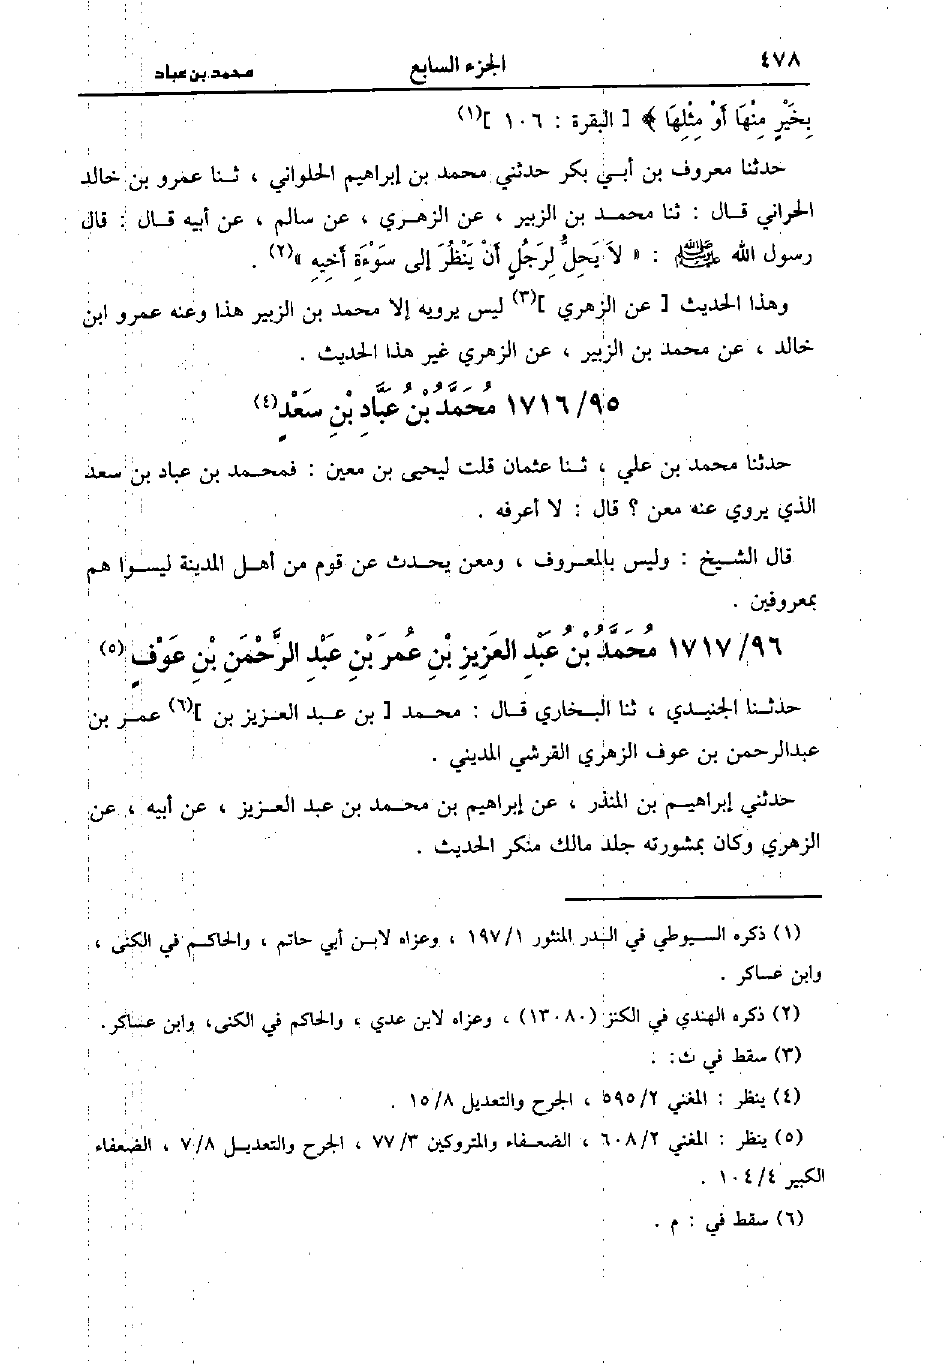 ٤٧٨ الجزء السابع محمد بن عباد
بِخَيْرٍ مِنْهَا أَوْ مِثْلِهَا ﴾ [ البقرة : ١٠٦ ](١)
حدثنا معروف بن أبي بكر حدثني محمد بن إبراهيم الحلواني ، ثنا عمرو بن خالد
الحراني قال : ثنا محمد بن الزبير ، عن الزهري ، عن سالم ، عن أبيه قال : قال
رسول الله ﷺ : « لاَ يَحِلُّ لِرَجُلٍ أَنْ يَنْظُرَ إلى سَوْءَةِ أَخِيهِ »(٢) .
وهذا الحديث [ عن الزهري ](٣) ليس يرويه إلا محمد بن الزبير هذا وعنه عمرو ابن
خالد ، عن محمد بن الزبير ، عن الزهري غير هذا الحديث .
١٧١٦/٩٥ مُحَمَّدُ بْنُ عَبَّادِ بْنِ سَعْدٍ(٤)
حدثنا محمد بن علي ، ثنا عثمان قلت ليحيى بن معين : فمحمد بن عباد بن سعد
الذي يروي عنه معن ؟ قال : لا أعرفه .
قال الشيخ : وليس بالمعروف ، ومعن يحدث عن قوم من أهل المدينة ليسوا هم
بمعروفين .
١٧١٧/٩٦ مُحَمَّدُ بْنُ عَبْدِ العَزِيزِ بْنِ عُمَرَ بْنِ عَبْدِ الرَّحْمَنِ بْنِ عَوْفٍ (٥)
حدثنا الجنيدي ، ثنا البخاري قال : محمد [ بن عبد العزيز بن ](٦) عمر بن
عبدالرحمن بن عوف الزهري القرشي المديني .
حدثني إبراهيم بن المنذر ، عن إبراهيم بن محمد بن عبد العزيز ، عن أبيه ، عن
الزهري وكان بمشورته جلد مالك منكر الحديث .
(١) ذكره السيوطي في الدر المنثور ١٩٧/١ ، وعزاه لابن أبي حاتم ، والحاكم في الكنى ،
وابن عساكر .
(٢) ذكره الهندي في الكنز (١٣٠٨٠) ، وعزاه لابن عدي ، والحاكم في الكنى، وابن عساكر.
(٣) سقط في ث: .
(٤) ينظر : المغني ٥٩٥/٢ ، الجرح والتعديل ١٥/٨ .
(٥) ينظر : المغني ٦٠٨/٢ ، الضعفاء والمتروكين ٧٧/٣ ، الجرح والتعديل ٧/٨ ، الضعفاء
الكبير ١٠٤/٤ .
(٦) سقط في : م .